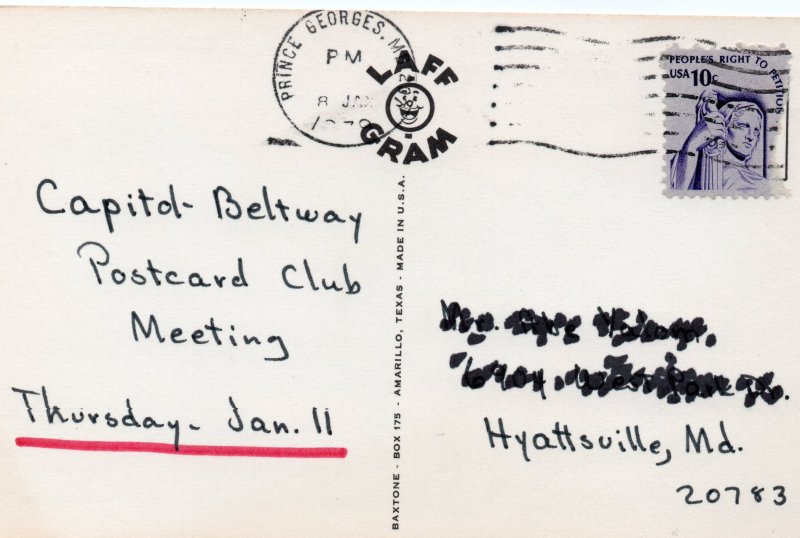 PRINCE GEORGES, M
PM
8 JAN
1979
LAFF
GRAM
PEOPLE'S RIGHT TO PETITION
USA 10c
Capitol- Beltway
Postcard Club
Meeting
Thursday- Jan. 11
BAXTONE - BOX 175 - AMARILLO, TEXAS - MADE IN U.S.A.
Hyattsville, Md.
20783